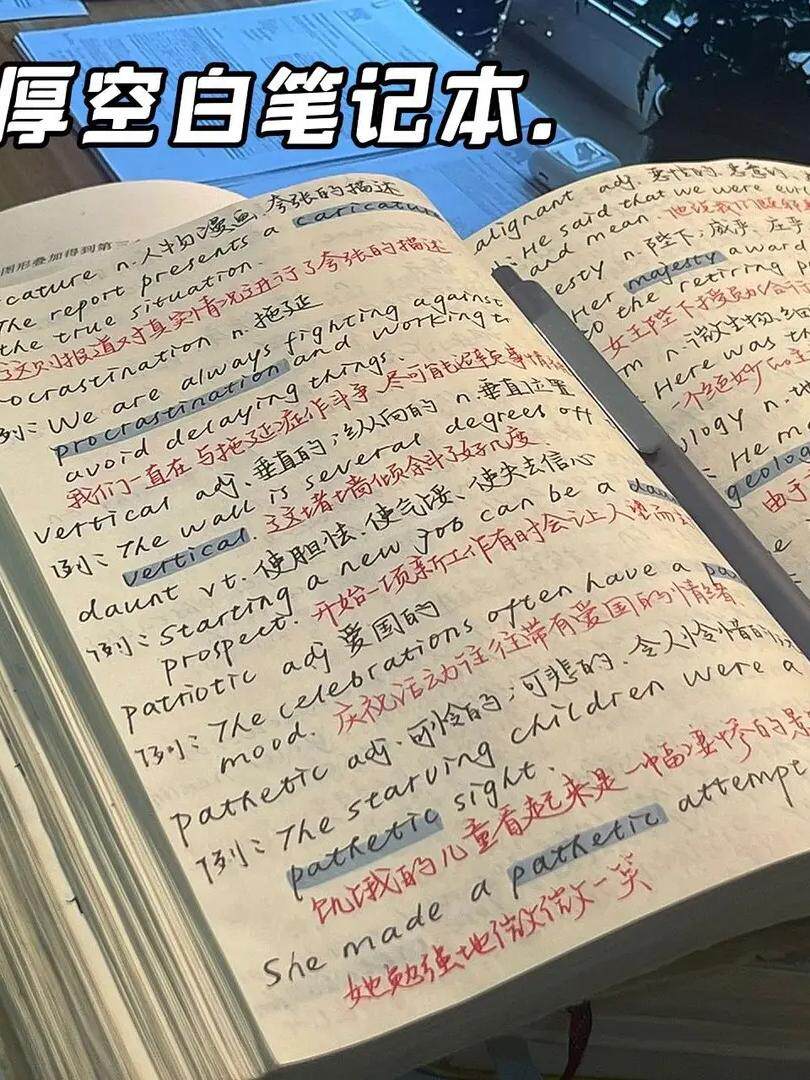 厚空白笔记本.
图形叠加得到第二
cature n.人物漫画,夸张的描述
The report presents a caricature
the true situation.
这则报道对真实情况进行了夸张的描述
ocrastination n. 拖延
例: We are always fighting against
procrastination and working t
avoid delaying things.
我们一直在与拖延症作斗争 尽可能避免事情
vertical adj. 垂直的;纵向的 n.垂直位置
例: The wall is several degrees off
vertical. 这堵墙倾斜了好几度.
daunt vt. 使胆怯.使气馁、使失去信心
例: Starting a new job can be a dau
prospect. 开始一项新工作有时会让人望而
patriotic adj 爱国的
例: The celebrations often have a pa
mood. 庆祝活动往往带有爱国的情绪.
pathetic adj. 可怜的;可悲的.令人怜惜的
例: The starving children were a
pathetic sight.
饥饿的儿童看起来是一幅凄惨的景
She made a pathetic attempt
她勉强地微微一笑
alignant adj. 恶性的.恶意的
: He said that we were
and mean. 他说我们
esty n. 陛下;威严、庄乎
Her majesty award
to the retiring
女王陛下授勋给
m n.微生物.
Here was th
一个绝妙
ology n.
: He m
geolog
由于